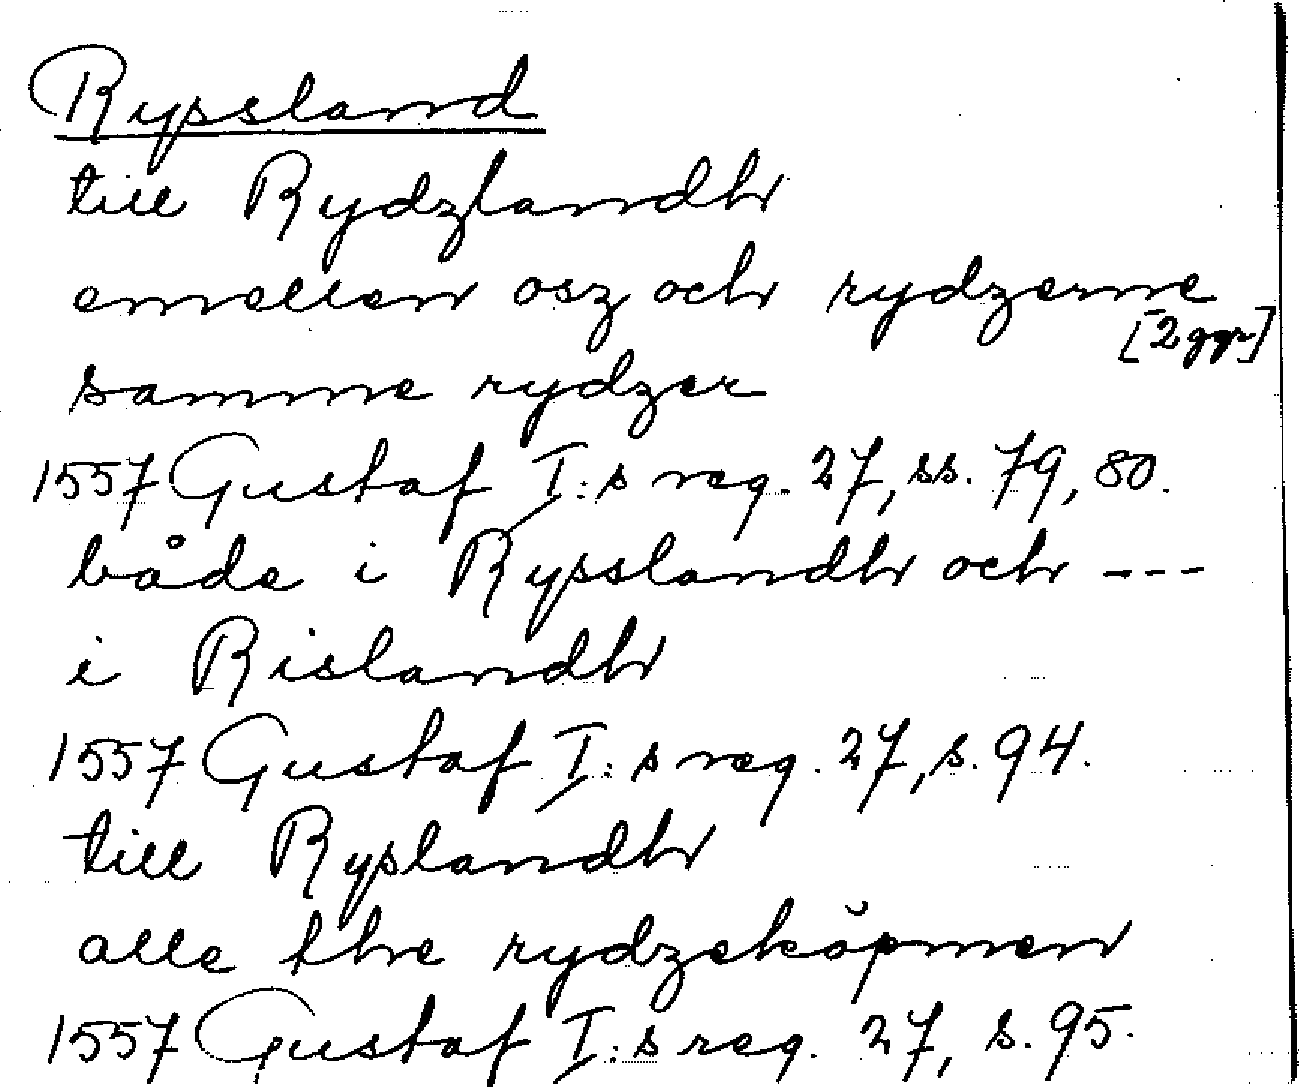 Ryssland
till Rydzlandh
emellen osz och rydzerne
[2 ggr]
samme rydzer
1557 Gustaf I:s reg. 27, ss. 79, 80.
både i Rysslandh och ---
i Rislandh
1557 Gustaf I:s reg. 27, s. 94.
till Ryslandh
alle the rydzeköpmen
1557 Gustaf I:s reg. 27, s. 95.